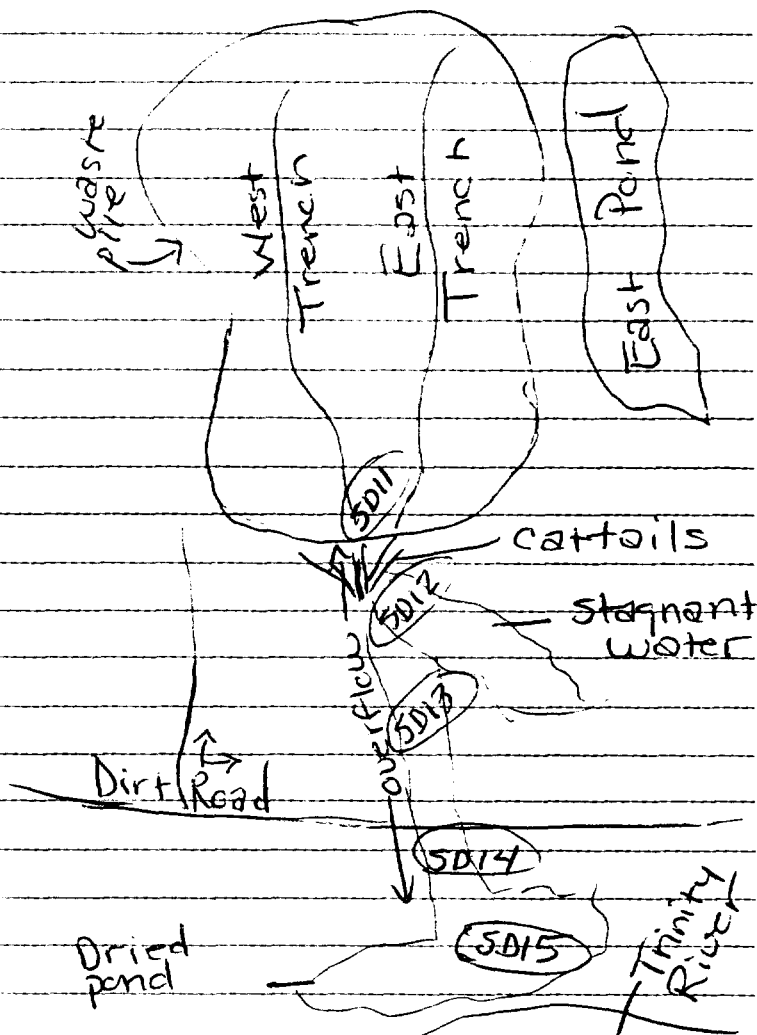 waste
pipe
West
Trench
East
Trench
East Pond
SD11
cattails
SD12
stagnant
water
overflow
SD13
Dirt Road
SD14
SD15
Dried
pond
Trinity
River